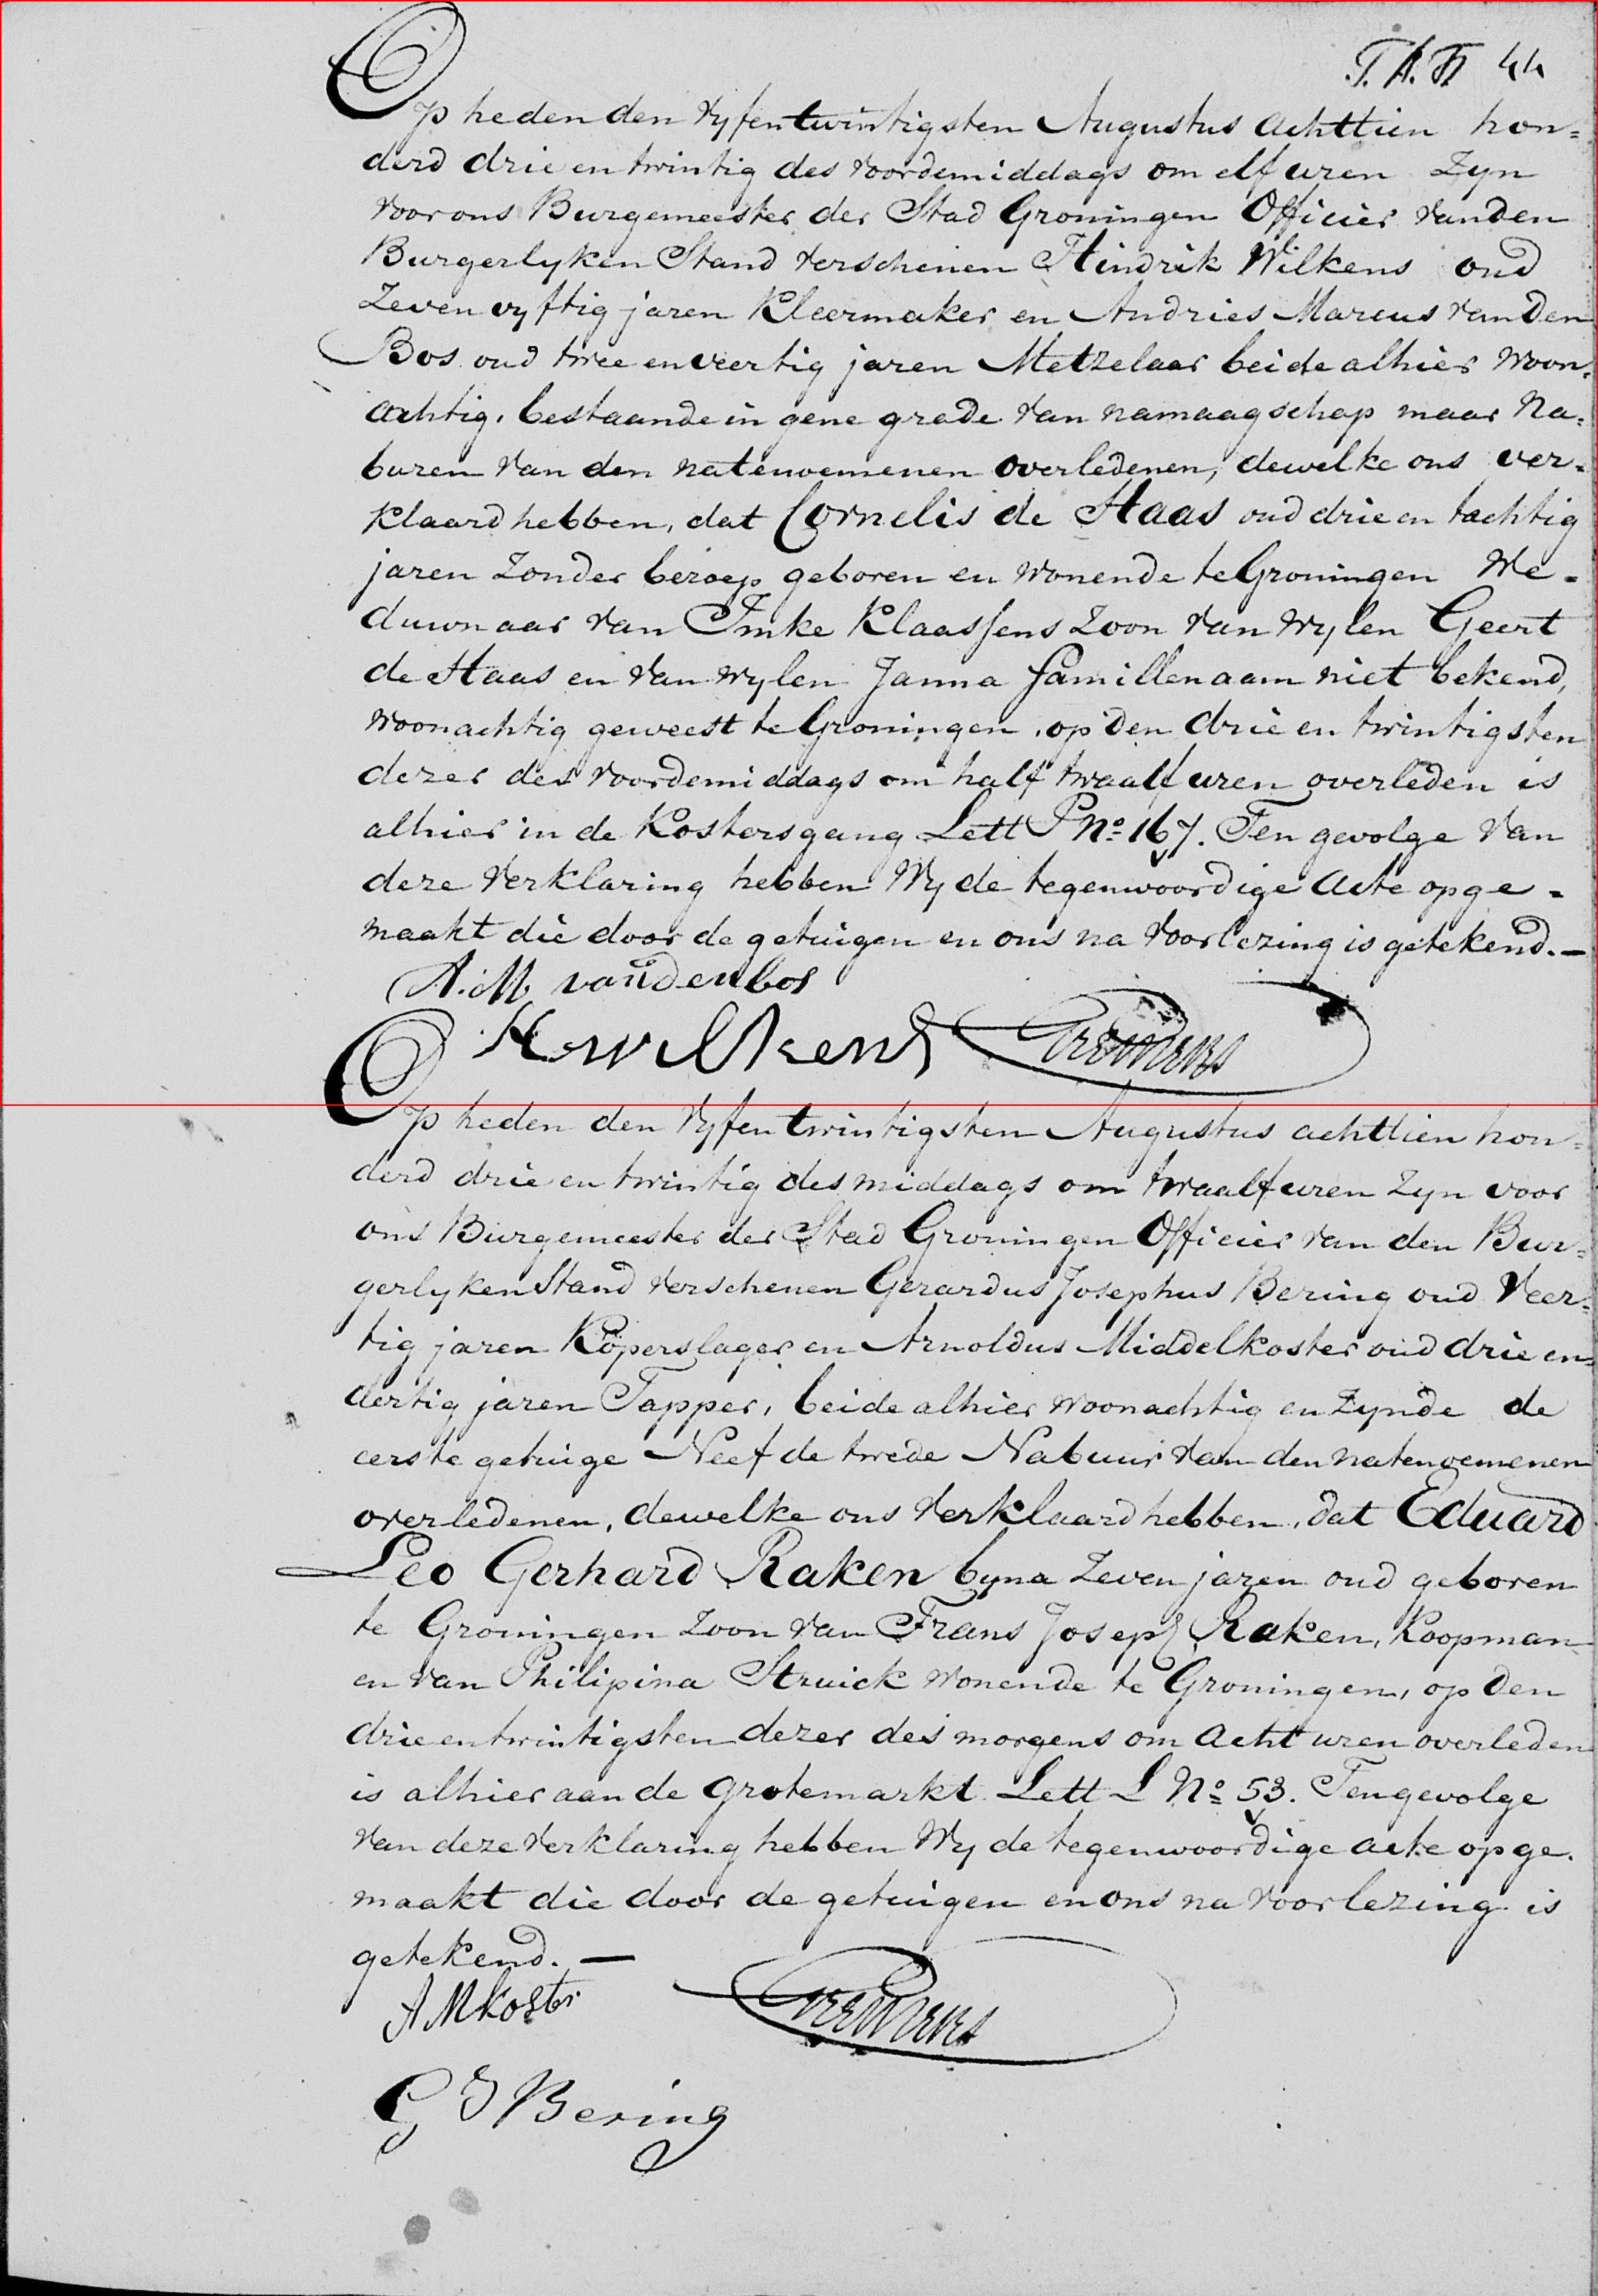 44
Op heden den vyfentwintigsten Augustus achttien hon=
derd drie en twintig des voordemiddags om elf uren Zyn
voor ons Burgemeester der Stad Groningen Officier van den
Burgerlyken Stand verschenen Hindrik Wilkens oud
Zeven vyftig jaren Kleermaker en Andries Marcus van den
Bos oud twee en veertig jaren Metzelaar beide alhier woon=
achtig, bestaande in gene grade van namaagschap maar Na=
buren van den natenoemenen overledenen, dewelke ons ver=
klaard hebben, dat Cornelis de Haas oud drie en tachtig
jaren Zonder beroep geboren en wonende te Groningen We=
duwnaar van Imke Klaassens Zoon van wylen Geert
de Haas en van wylen Janna famillenaam niet bekend,
woonachtig geweest te Groningen, op den drie en twintigsten
dezer des voordemiddags om half twaalf uren overleden is
alhier in de Kostersgang Lett P No 167. Ten gevolge van
deze verklaring hebben Wy de tegenwoordige acte opge=
maakt die door de getuigen en ons na voorlezing is getekend.—
A. M. van den bos
H wilkens
Op heden den vyfentwintigsten Augustus achttien hon=
derd drie en twintig des middags om twaalf uren Zyn voor
ons Burgemeester der Stad Groningen Officier van den Bur=
gerlyken Stand verschenen Gerardus Josephus Bering oud Veer=
tig jaren Koperslager en Arnoldus Middelkoster oud drie en=
dertig jaren Tapper, beide alhier woonachtig en Zynde de
eerste getuige Neef de twede Nabuur van den natenoemenen
overledenen, dewelke ons verklaard hebben, dat Eduard
Leo Gerhard Raken byna Zeven jaren oud geboren
te Groningen Zoon van Frans Joseph Raken, Koopman
en van Philipina Struick wonende te Groningen, op den
drie en twintigsten dezer des morgens om acht uren overleden
is alhier aan de grotemarkt Lett L No 53. Tengevolge
van deze verklaring hebben Wy de tegenwoordige acte opge=
maakt die door de getuigen en ons na voorlezing is
getekend.—
A MKoster
G J Bering